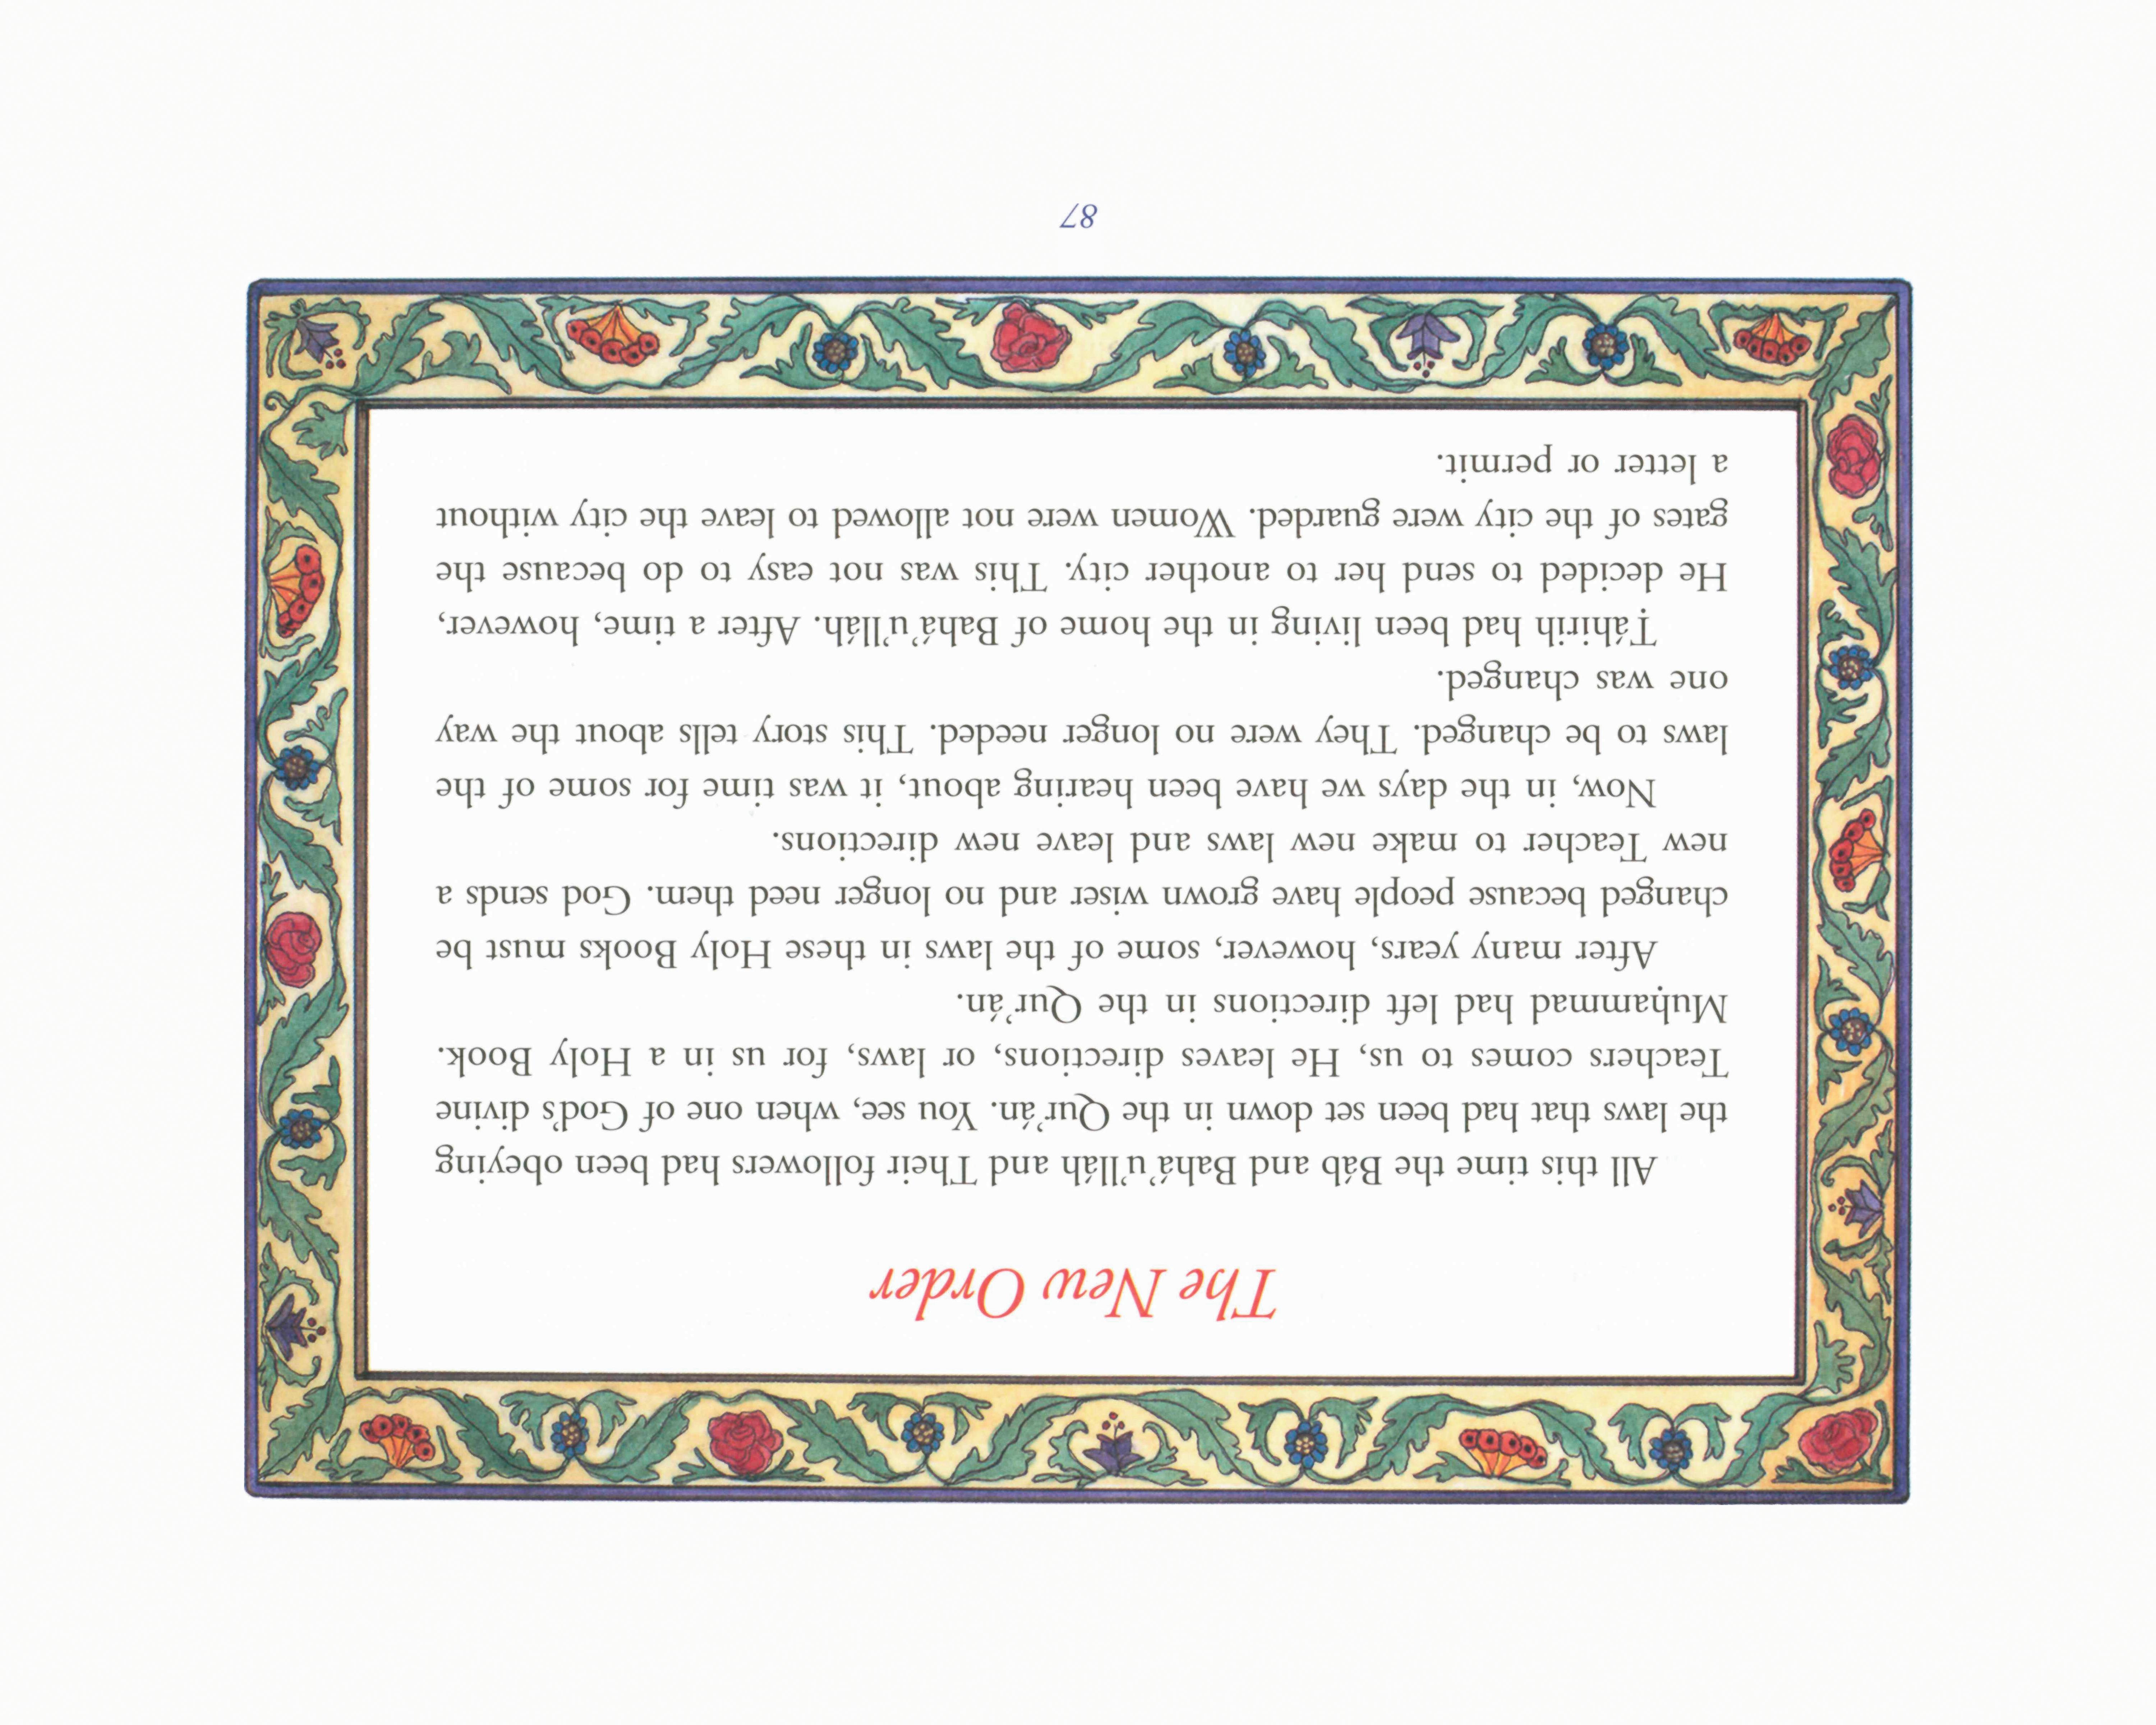 The New Order
All this time the Báb and Bahá’u’lláh and Their followers had been obeying
the laws that had been set down in the Qur’án. You see, when one of God's divine
Teachers comes to us, He leaves directions, or laws, for us in a Holy Book.
Muḥammad had left directions in the Qur’án.
After many years, however, some of the laws in these Holy Books must be
changed because people have grown wiser and no longer need them. God sends a
new Teacher to make new laws and leave new directions.
Now, in the days we have been hearing about, it was time for some of the
laws to be changed. They were no longer needed. This story tells about the way
one was changed.
Ṭáhirih had been living in the home of Bahá’u’lláh. After a time, however,
He decided to send her to another city. This was not easy to do because the
gates of the city were guarded. Women were not allowed to leave the city without
a letter or permit.
87